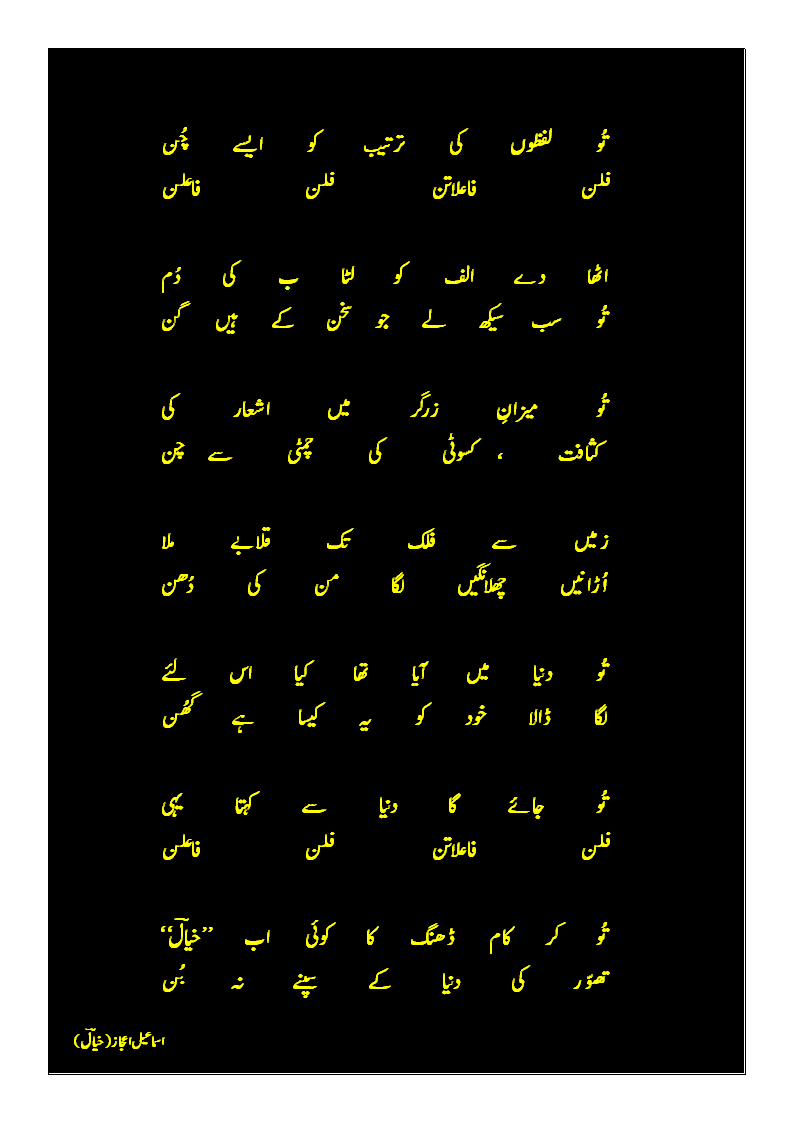 تُو لفظوں کی ترتیب کو ایسے چُن
فلن فاعلاتن فلن فاعلن
اٹھا دے الف کو لٹا ب کی دُم
تُو سب سیکھ لے جو سخن کے ہیں گن
تُو میزانِ زرگر میں اشعار کی
کثافت ، کسوٹی کی چمٹی سے چن
زمیں سے فلک تک قلابے ملا
اُڑانیں چھلانگیں لگا من کی دُھن
تُو دنیا میں آیا تھا کیا اس لئے
لگا ڈالا خود کو یہ کیسا ہے گُھن
تُو جائے گا دنیا سے کہتا یہی
فلن فاعلاتن فلن فاعلن
تُو کر کام ڈھنگ کا کوئی اب ’’خیالؔ‘‘
تصوّر کی دنیا کے سپنے نہ بُن
اسماعیل اعجاز (خیالؔ)